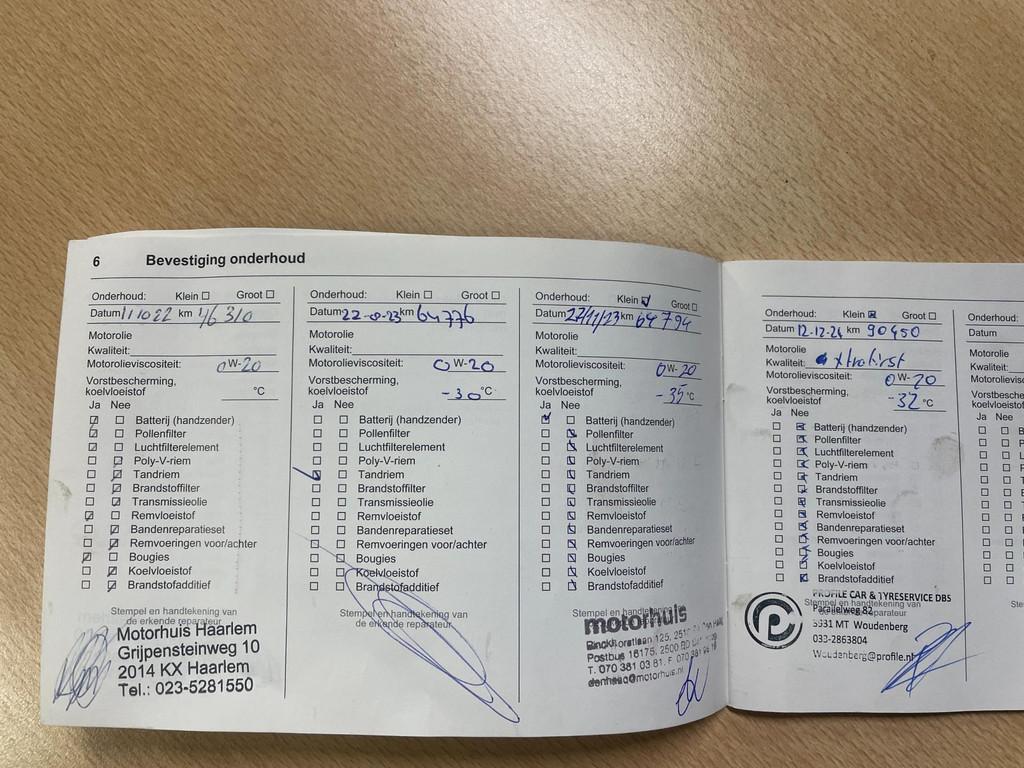 6 Bevestiging onderhoud
Onderhoud: Klein ☐ Groot ☐
Datum 11022 km 46 310
Motorolie
Kwaliteit:
Motorolieviscositeit: 0W-20
Vorstbescherming,
koelvloeistof °C
Ja Nee
☑ ☐ Batterij (handzender)
☑ ☐ Pollenfilter
☑ ☐ Luchtfilterelement
☐ ☑ Poly-V-riem
☐ ☑ Tandriem
☐ ☑ Brandstoffilter
☐ ☑ Transmissieolie
☑ ☐ Remvloeistof
☐ ☑ Bandenreparatieset
☐ ☑ Remvoeringen voor/achter
☑ ☐ Bougies
☐ ☑ Koelvloeistof
☐ ☑ Brandstofadditief
Stempel en handtekening van
de erkende reparateur
Motorhuis Haarlem
Grijpensteinweg 10
2014 KX Haarlem
Tel.: 023-5281550
Onderhoud: Klein ☐ Groot ☐
Datum 22-8-23 km 64776
Motorolie
Kwaliteit:
Motorolieviscositeit: 0W-20
Vorstbescherming,
koelvloeistof -30°C
Ja Nee
☐ ☐ Batterij (handzender)
☐ ☐ Pollenfilter
☐ ☐ Luchtfilterelement
☐ ☐ Poly-V-riem
☑ ☐ Tandriem
☐ ☐ Brandstoffilter
☐ ☐ Transmissieolie
☐ ☐ Remvloeistof
☐ ☐ Bandenreparatieset
☐ ☐ Remvoeringen voor/achter
☐ ☐ Bougies
☐ ☐ Koelvloeistof
☐ ☐ Brandstofadditief
Stempel en handtekening van
de erkende reparateur
Onderhoud: Klein ☑ Groot ☐
Datum 27/11/23 km 64794
Motorolie
Kwaliteit:
Motorolieviscositeit: 0W-20
Vorstbescherming,
koelvloeistof -35°C
Ja Nee
☑ ☐ Batterij (handzender)
☐ ☑ Pollenfilter
☐ ☑ Luchtfilterelement
☐ ☑ Poly-V-riem
☐ ☑ Tandriem
☐ ☑ Brandstoffilter
☐ ☑ Transmissieolie
☐ ☑ Remvloeistof
☐ ☑ Bandenreparatieset
☐ ☑ Remvoeringen voor/achter
☐ ☑ Bougies
☐ ☑ Koelvloeistof
☐ ☑ Brandstofadditief
Stempel en handtekening van
motorhuis
Binckhorstlaan 125, 251
Postbus 16175, 2500 BD
T. 070 381 03 81, F. 070 381
denhaag@motorhuis.nl
Onderhoud: Klein ☒ Groot ☐
Datum 12-12-24 km 90450
Motorolie
Kwaliteit: xtrafirst
Motorolieviscositeit: 0W-20
Vorstbescherming,
koelvloeistof -32°C
Ja Nee
☐ ☒ Batterij (handzender)
☐ ☒ Pollenfilter
☐ ☒ Luchtfilterelement
☐ ☒ Poly-V-riem
☐ ☒ Tandriem
☐ ☒ Brandstoffilter
☐ ☒ Transmissieolie
☐ ☒ Remvloeistof
☐ ☒ Bandenreparatieset
☐ ☒ Remvoeringen voor/achter
☐ ☒ Bougies
☐ ☒ Koelvloeistof
☐ ☒ Brandstofadditief
Stempel en handtekening van
de erkende reparateur
PROFILE CAR & TYRESERVICE DBS
Parallelweg 82
3931 MT Woudenberg
033-2863804
Woudenberg@profile.nl
Onderhoud:
Datum
Motorolie
Kwaliteit:
Motorolievis
Vorstbesche
koelvloeistof
Ja Nee